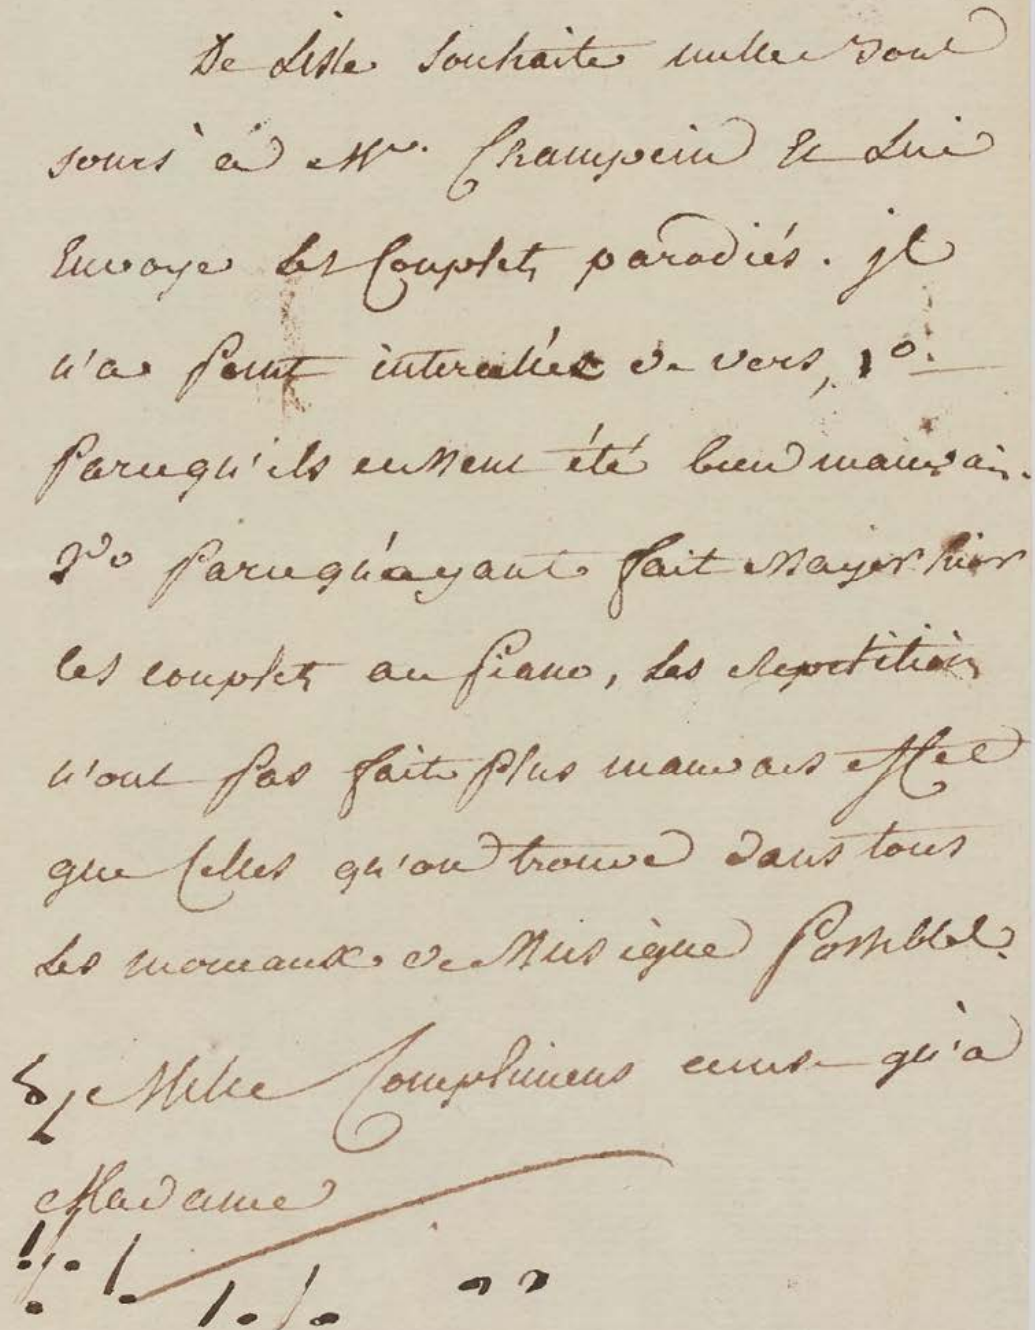 De Lisle souhaite mille bont
jours à Mr. Champein Et Lui
Envoye les Couplets parodiés. jl
n'a point intercallés de vers, 1°.
parcequ'ils eussent été bien mauvais.
2do parcequ'ayant fait essayer hier
les couplets au piano, les repetitions
n'ont pas fait plus mauvais effet
que Celles qu'on trouve dans tous
les morceaux de Musique possibles.
Mille Complimens ainsi qu'à
Madame